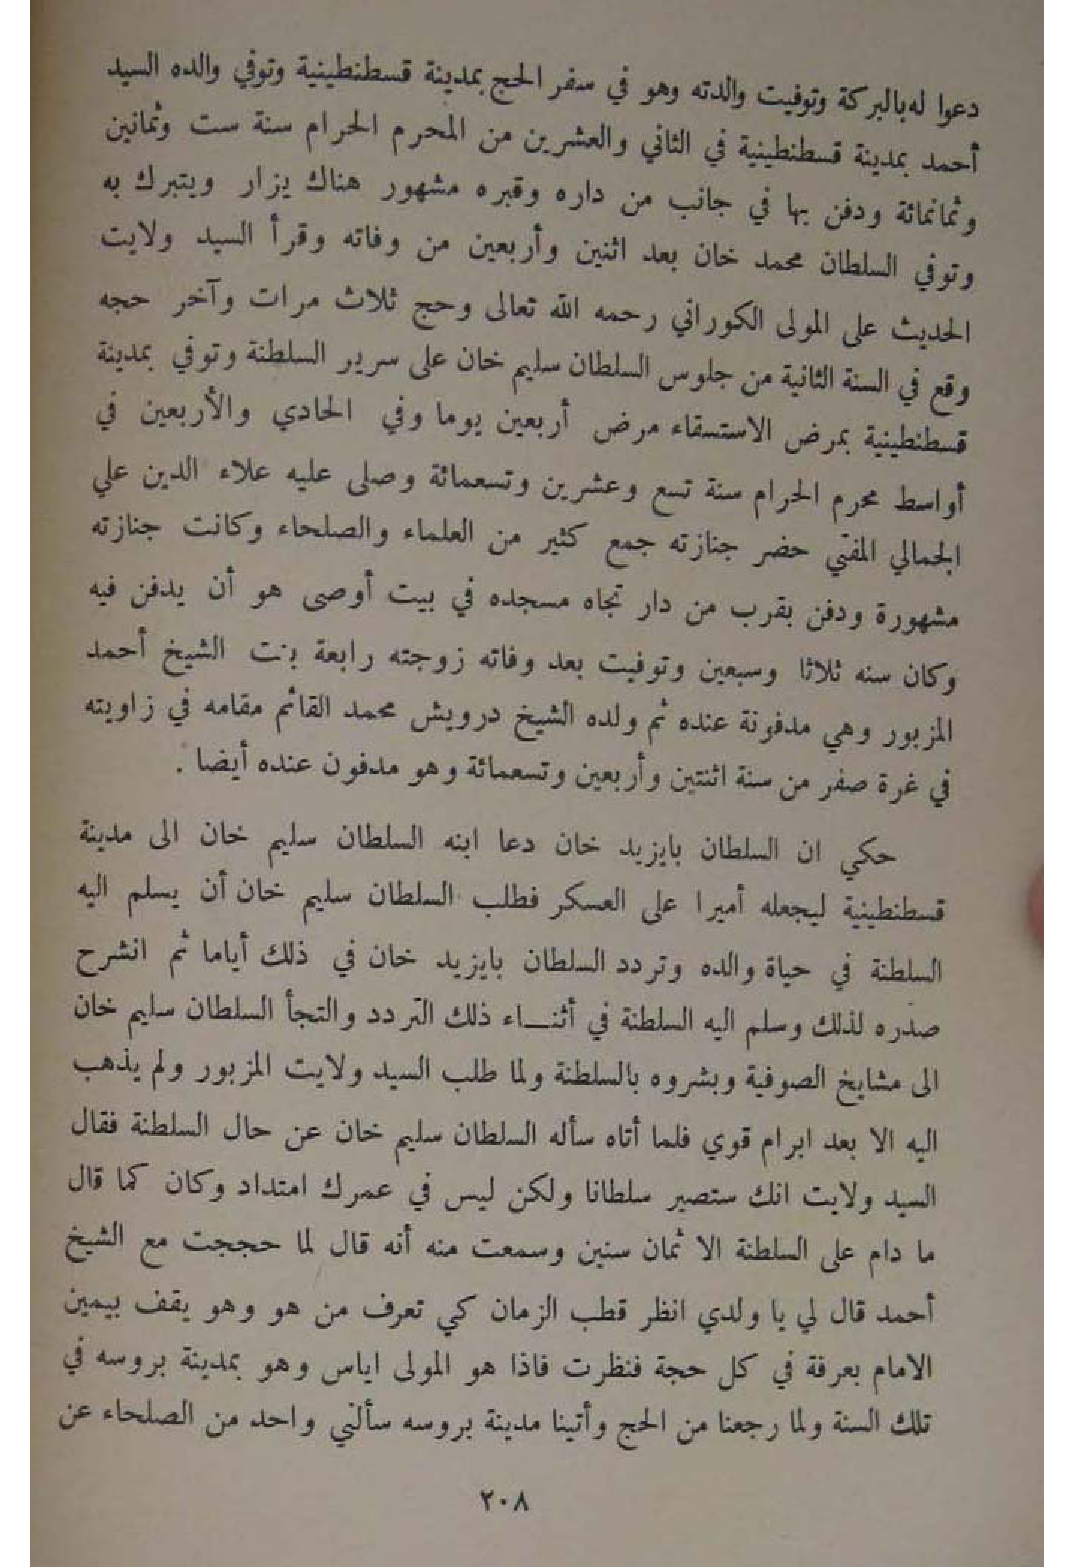 دعوا له بالبركة وتوفيت والدته وهو في سفر الحج بمدينة قسطنطينية وتوفي والده السيد
أحمد بمدينة قسطنطينية في الثاني والعشرين من المحرم الحرام سنة ست وثمانين
وثمانمائة ودفن بها في جانب من داره وقبره مشهور هناك يزار ويتبرك به
وتوفي السلطان محمد خان بعد اثنين وأربعين من وفاته وقرأ السيد ولايت
الحديث على المولى الكوراني رحمه الله تعالى وحج ثلاث مرات وآخر حجه
وقع في السنة الثانية من جلوس السلطان سليم خان على سرير السلطنة وتوفي بمدينة
قسطنطينية بمرض الاستسقاء مرض أربعين يوما وفي الحادي والأربعين في
أواسط محرم الحرام سنة تسع وعشرين وتسعمائة وصلى عليه علاء الدين علي
الجمالي المفتي حضر جنازته جمع كثير من العلماء والصلحاء وكانت جنازته
مشهورة ودفن بقرب من دار تجاه مسجده في بيت أوصى هو أن يدفن فيه
وكان سنه ثلاثا وسبعين وتوفيت بعد وفاته زوجته رابعة بنت الشيخ أحمد
المزبور وهي مدفونة عنده ثم ولده الشيخ درويش محمد القائم مقامه في زاويته
في غرة صفر من سنة اثنتين وأربعين وتسعمائة وهو مدفون عنده أيضا .
حكي ان السلطان بايزيد خان دعا ابنه السلطان سليم خان الى مدينة
قسطنطينية ليجعله أميرا على العسكر فطلب السلطان سليم خان أن يسلم اليه
السلطنة في حياة والده وتردد السلطان بايزيد خان في ذلك أياما ثم انشرح
صدره لذلك وسلم اليه السلطنة في أثنـاء ذلك التردد والتجأ السلطان سليم خان
الى مشايخ الصوفية وبشروه بالسلطنة ولما طلب السيد ولايت المزبور ولم يذهب
اليه الا بعد ابرام قوي فلما أتاه سأله السلطان سليم خان عن حال السلطنة فقال
السيد ولايت انك ستصير سلطانا ولكن ليس في عمرك امتداد وكان كما قال
ما دام على السلطنة الا ثمان سنين وسمعت منه أنه قال لما حججت مع الشيخ
أحمد قال لي يا ولدي انظر قطب الزمان كي تعرف من هو وهو يقف بيمين
الامام بعرفة في كل حجة فنظرت فاذا هو المولى اياس وهو بمدينة بروسه في
تلك السنة ولما رجعنا من الحج وأتينا مدينة بروسه سألني واحد من الصلحاء عن
٢٠٨